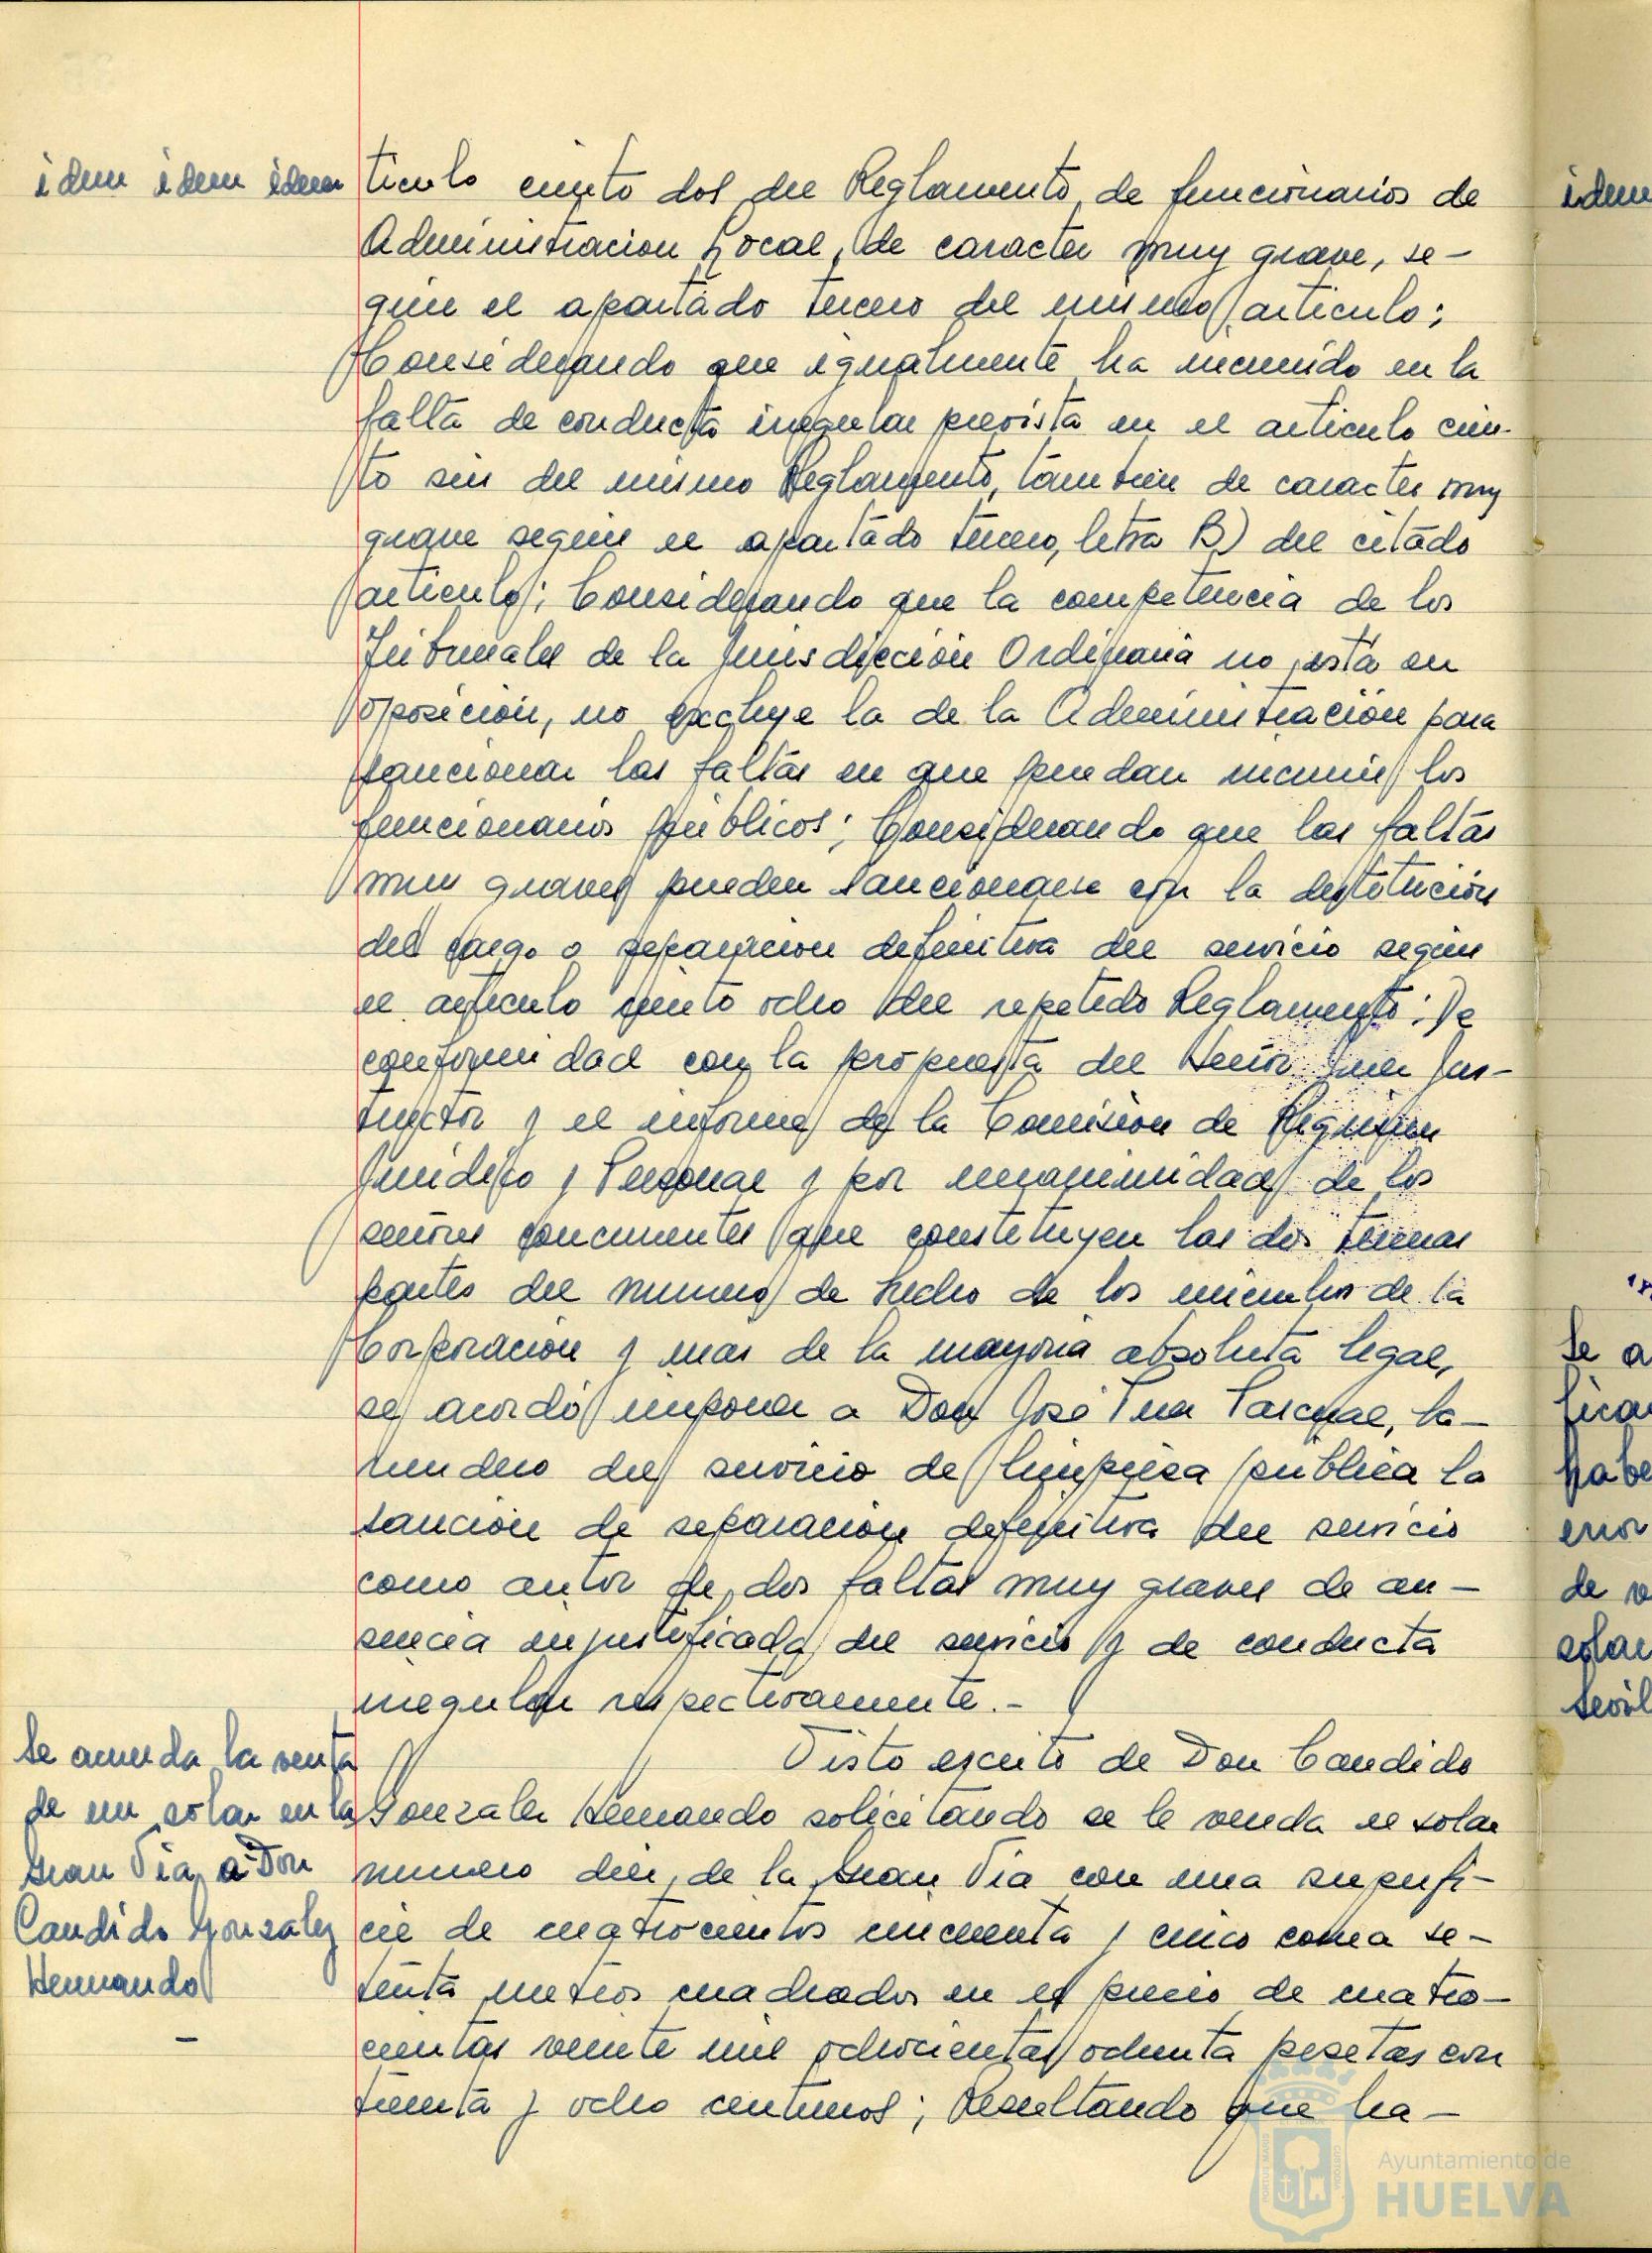 idem idem idem
ticulo ciento dos del Reglamento de funcionarios de
Administracion Local, de caracter muy grave, se-
gún el apartado tercero del mismo articulo;
Considerando que igualmente ha incurrido en la
falta de conducta irregular prevista en el articulo cien-
to seis del mismo Reglamento, tambien de caracter muy
grave según el apartado tercero, letra B) del citado
articulo; Considerando que la competencia de los
Tribunales de la Jurisdicción Ordinaria no está en
oposición, no excluye la de la Administración para
sancionar las faltas en que puedan incurrir los
funcionarios públicos; Considerando que las faltas
muy graves pueden sancionarse con la destitución
del cargo o separacion definitiva del servicio según
el articulo ciento ocho del repetido Reglamento: De
conformidad con la propuesta del Señor Juez Ins-
tructor y el informe de la Comisión de Regimen
Juridico y Personal y por unanimidad de los
señores concurrentes que constituyen las dos terceras
partes del numero de hecho de los miembros de la
Corporación y mas de la mayoria absoluta legal,
se acordó imponer a Don José Pascual, ba-
rrendero del servicio de limpieza pública la
sanción de separación definitiva del servicio
como autor de dos faltas muy graves de au-
sencia injustificada del servicio y de conducta
irregular respectivamente.-
Se acuerda la venta
de un solar en la
Gran Via a Don
Candido Gonzalez
Hernando
-
Visto escrito de Don Candido
Gonzalez Hernando solicitando se le venda el solar
numero diez de la Gran Via con una superfi-
cie de cuatrocientos cincuenta y cinco coma se-
tenta metros cuadrados en el precio de cuatro-
cientas veinte mil ochocientas ochenta pesetas con
treinta y ocho centimos; Resultando que ha-
idem
Se a
ficar
habe
error
de v
solar
Sevil
Ayuntamiento de
HUELVA